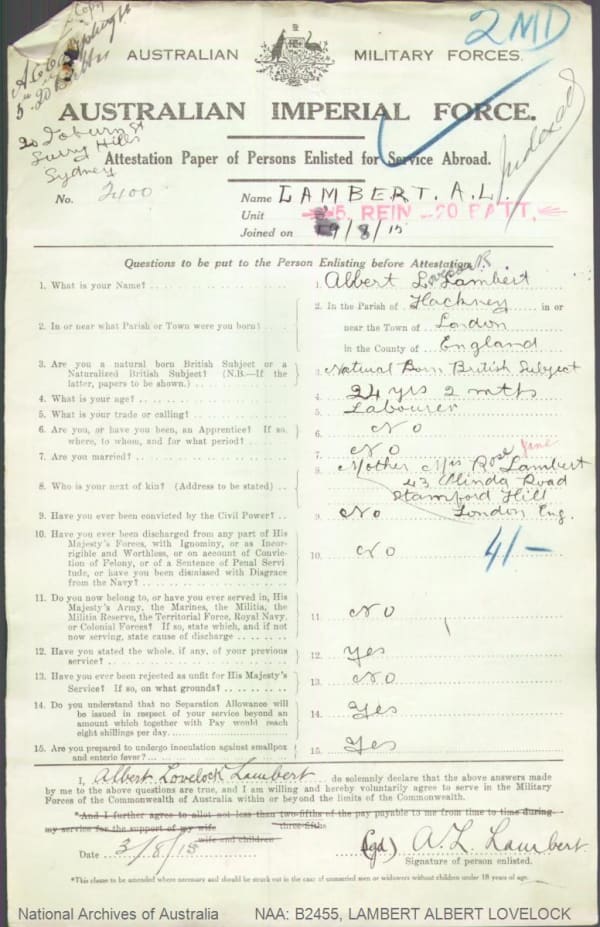 Copy
5" 20 Battn
2ND
AUSTRALIAN MILITARY FORCES.
AUSTRALIAN IMPERIAL FORCE.
Surry Hills
Sydney
Indexed
Attestation Paper of Persons Enlisted for Service Abroad.
No. 2400
Name LAMBERT. A.L.
Unit 5. REIN 20 BATT.
Joined on 9/8/15
Questions to be put to the Person Enlisting before Attestation.
1. What is your Name? 1. Albert Lovelock Lambert
2. In or near what Parish or Town were you born? 2. In the Parish of Hackney in or
near the Town of London
in the County of England
3. Are you a natural born British Subject or a
Naturalized British Subject? (N.B.—If the
latter, papers to be shown.) 3. Natural Born British Subject
4. What is your age? 4. 24 yrs 2 mths
5. What is your trade or calling? 5. Labourer
6. Are you, or have you been, an Apprentice? If so,
where, to whom, and for what period? 6. No
7. Are you married? 7. No
8. Who is your next of kin? (Address to be stated) 8. Mother Mrs Rose Jane Lambert
43 Olinda Road
Stamford Hill
London Eng.
9. Have you ever been convicted by the Civil Power? 9. No
10. Have you ever been discharged from any part of His
Majesty's Forces, with Ignominy, or as Incor-
rigible and Worthless, or on account of Convic-
tion of Felony, or of a Sentence of Penal Servi
tude, or have you been dismissed with Disgrace
from the Navy? 10. No
4/-
11. Do you now belong to, or have you ever served in, His
Majesty's Army, the Marines, the Militia, the
Militia Reserve, the Territorial Force, Royal Navy,
or Colonial Forces? If so, state which, and if not
now serving, state cause of discharge 11. No
12. Have you stated the whole, if any, of your previous
service? 12. Yes
13. Have you ever been rejected as unfit for His Majesty's
Service? If so, on what grounds? 13. No
14. Do you understand that no Separation Allowance will
be issued in respect of your service beyond an
amount which together with Pay would reach
eight shillings per day. 14. Yes
15. Are you prepared to undergo inoculation against smallpox
and enteric fever? 15. Yes
I, Albert Lovelock Lambert do solemnly declare that the above answers made
by me to the above questions are true, and I am willing and hereby voluntarily agree to serve in the Military
Forces of the Commonwealth of Australia within or beyond the limits of the Commonwealth.
*And I further agree to allot not less than two-fifths of the pay payable to me from time to time during
three-fifths
my service for the support of my wife
wife and children
Date 3/8/15 (sgd) A. L. Lambert
Signature of person enlisted.
*This clause to be amended where necessary and should be struck out in the case of unmarried men or widowers without children under 18 years of age.
National Archives of Australia NAA: B2455, LAMBERT ALBERT LOVELOCK